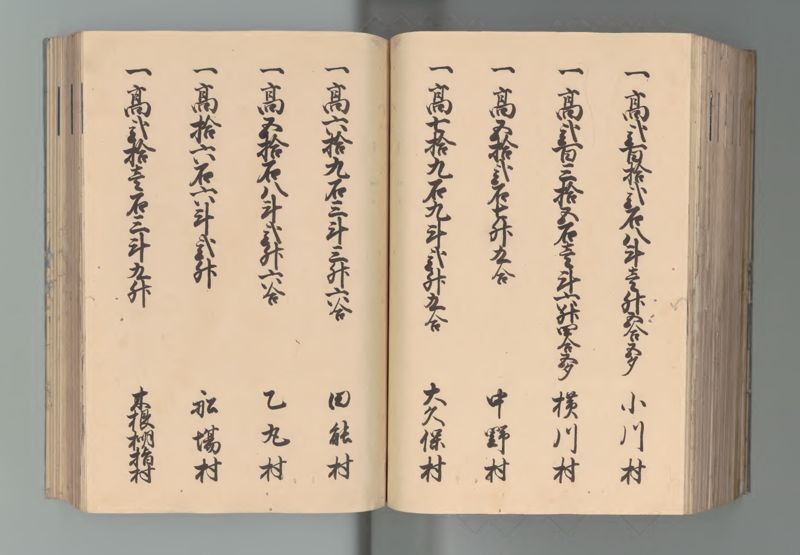 一高弐百拾弐石八斗壱升五合五夕 小川村
一高弐百三拾五石壱斗六升四合五夕 横川村
一高五拾弐石七升五合 中野村
一高七拾九石九斗弐升五合 大久保村
一高六拾九石三斗三升六合 田能村
一高五拾石八斗弐升六合 乙丸村
一高拾六石六斗弐升 船場村
一高弐拾壱石三斗九升 木根村